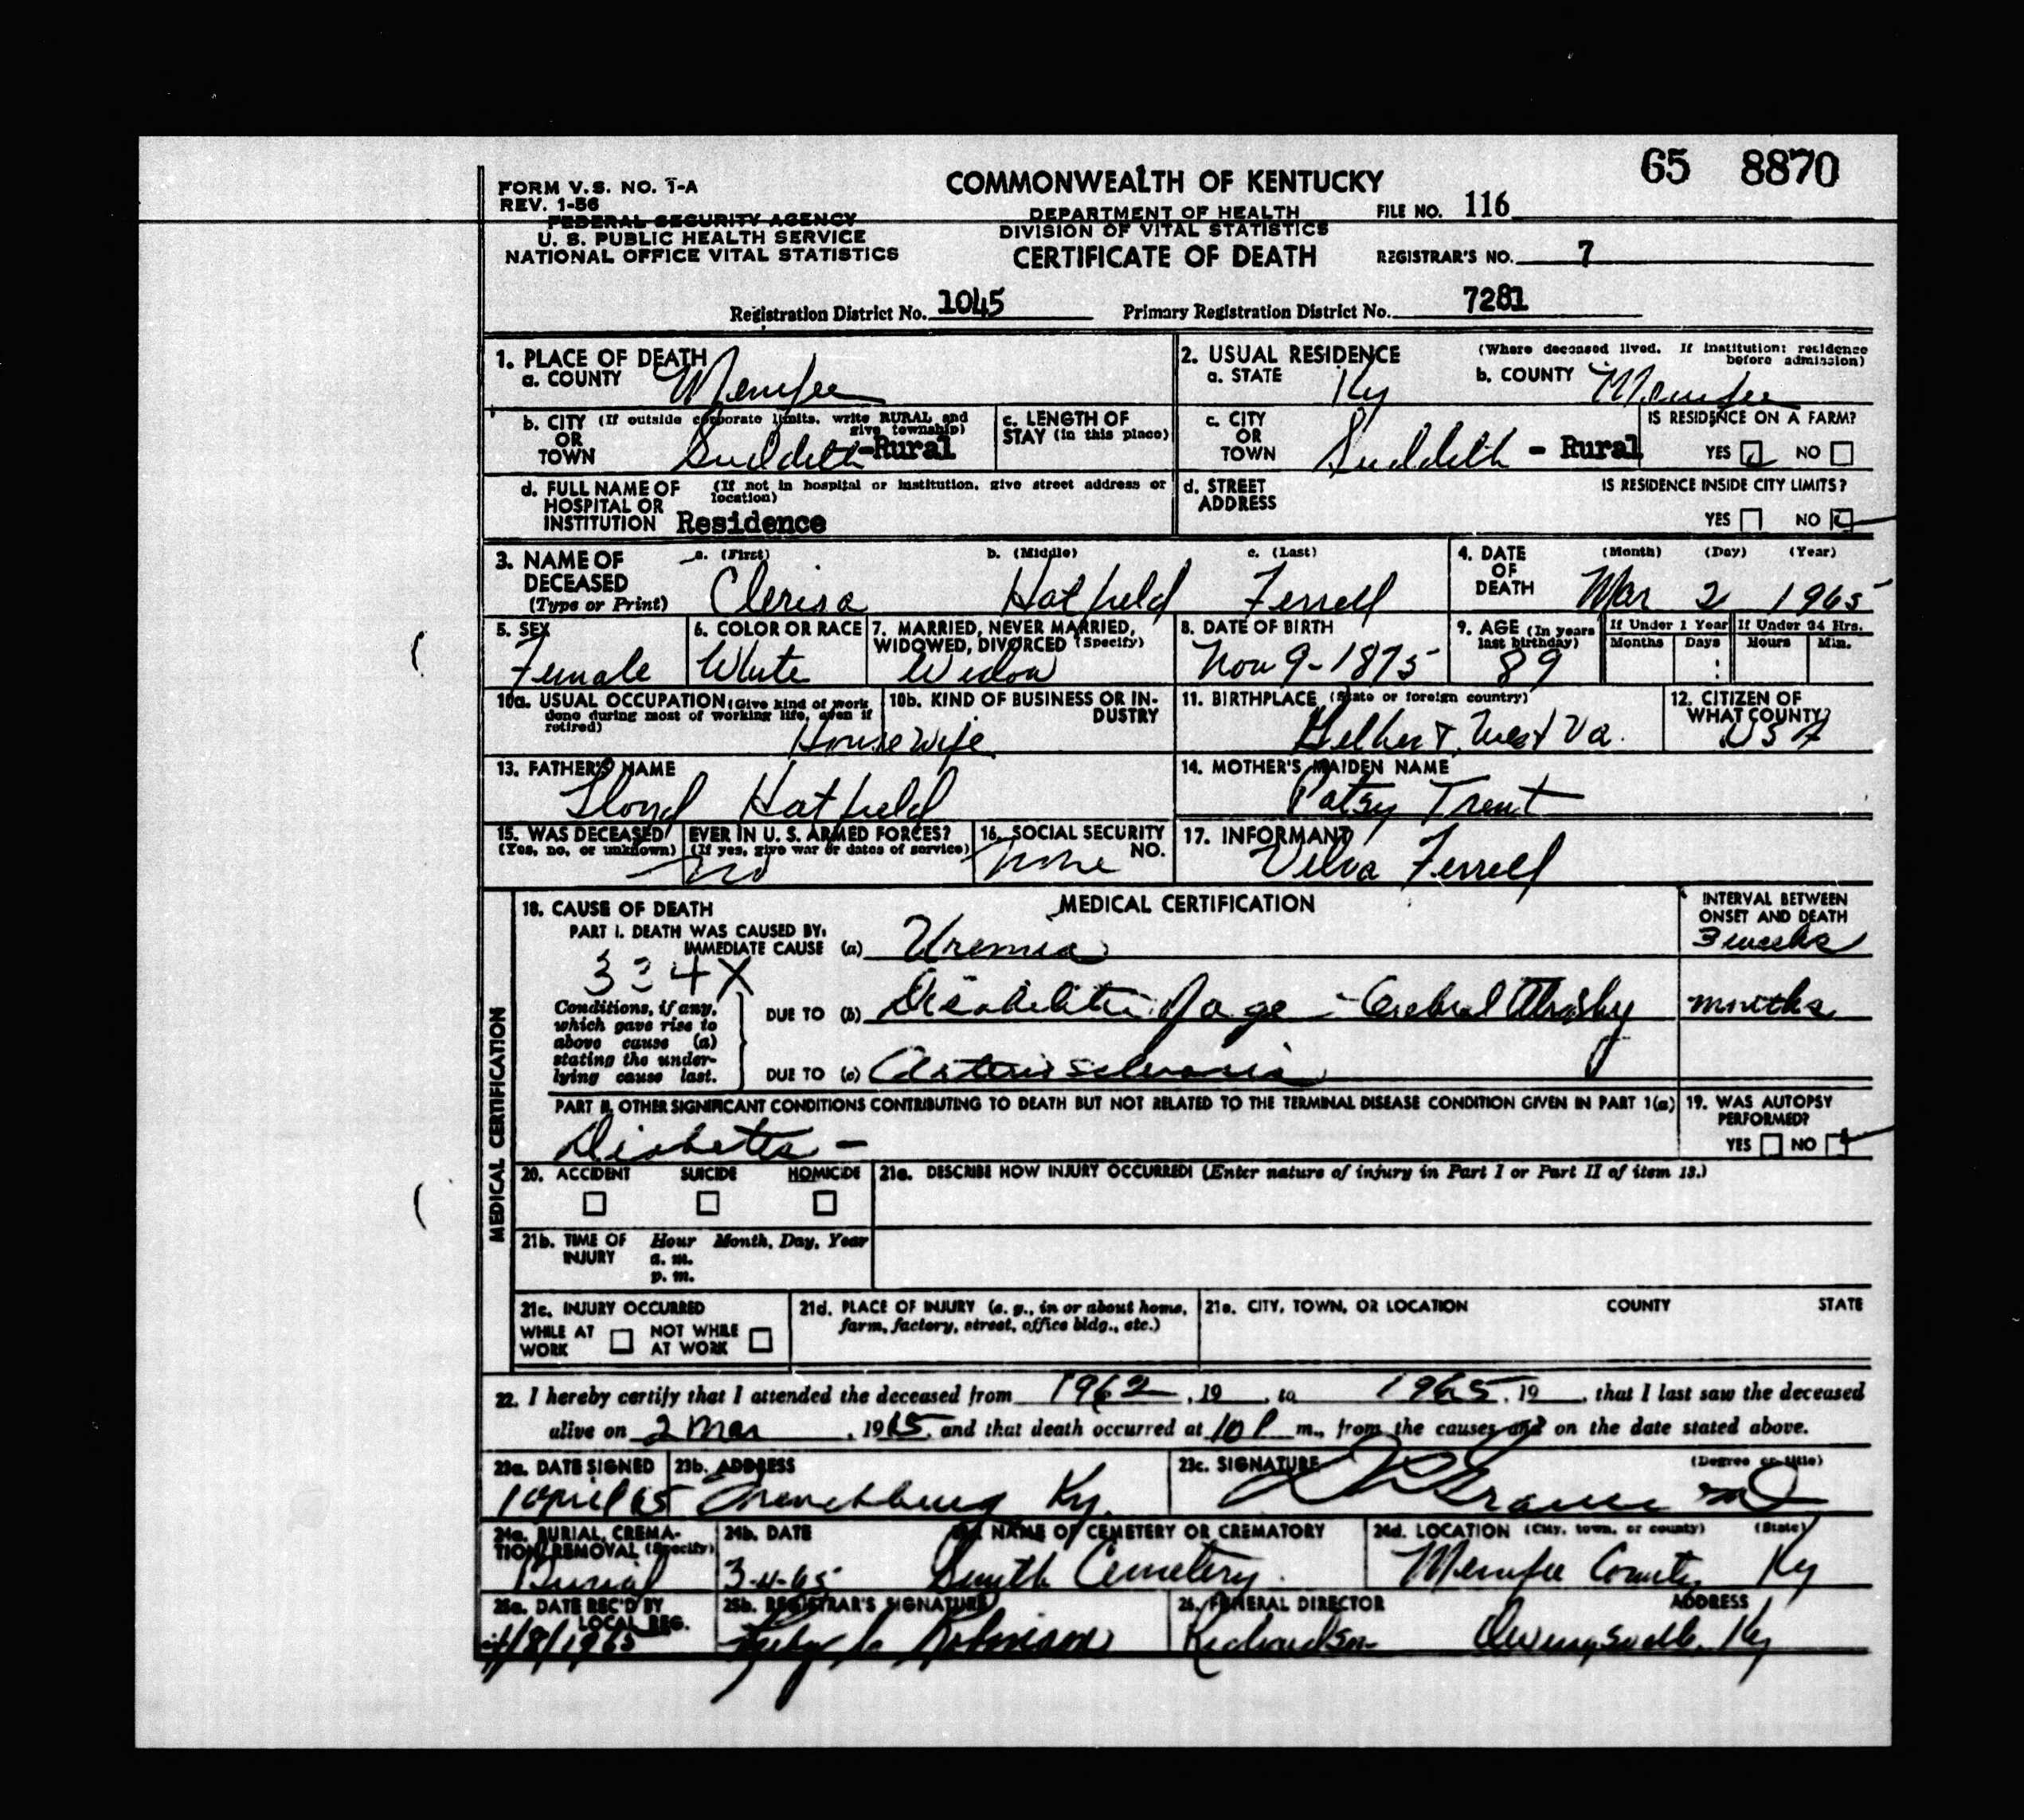 65 8870
FORM V. S. NO. 1-A
REV. 1-56
FEDERAL SECURITY AGENCY
U. S. PUBLIC HEALTH SERVICE
NATIONAL OFFICE VITAL STATISTICS
COMMONWEALTH OF KENTUCKY
DEPARTMENT OF HEALTH
DIVISION OF VITAL STATISTICS
CERTIFICATE OF DEATH
FILE NO. 116
REGISTRAR'S NO. 7
Registration District No. 1045 Primary Registration District No. 7281
1. PLACE OF DEATH
a. COUNTY Menifee
2. USUAL RESIDENCE (Where deceased lived. If institution: residence before admission)
a. STATE Ky b. COUNTY Menifee
b. CITY (If outside corporate limits, write RURAL and give township)
OR
TOWN Suddeth-Rural
c. LENGTH OF
STAY (in this place)
c. CITY
OR
TOWN Suddeth - Rural
IS RESIDENCE ON A FARM?
YES NO
d. FULL NAME OF (If not in hospital or institution, give street address or location)
HOSPITAL OR
INSTITUTION Residence
d. STREET
ADDRESS
IS RESIDENCE INSIDE CITY LIMITS?
YES NO
3. NAME OF
DECEASED
(Type or Print)
a. (First) b. (Middle) c. (Last)
Clerisa Hatfield Ferrell
4. DATE
OF
DEATH
(Month) (Day) (Year)
Mar 2 1965
5. SEX
Female
6. COLOR OR RACE
White
7. MARRIED, NEVER MARRIED,
WIDOWED, DIVORCED (Specify)
Widow
8. DATE OF BIRTH
Nov 9-1875
9. AGE (In years
last birthday)
89
If Under 1 Year If Under 24 Hrs.
Months Days Hours Min.
10a. USUAL OCCUPATION (Give kind of work
done during most of working life, even if
retired)
House wife
10b. KIND OF BUSINESS OR IN-
DUSTRY
11. BIRTHPLACE (State or foreign country)
West Va.
12. CITIZEN OF
WHAT COUNTY?
USA
13. FATHER'S NAME
Floyd Hatfield
14. MOTHER'S MAIDEN NAME
Patsy Trent
15. WAS DECEASED EVER IN U. S. ARMED FORCES?
(Yes, no, or unknown) (If yes, give war or dates of service)
no
16. SOCIAL SECURITY
NO.
none
17. INFORMANT
Velva Ferrell
MEDICAL CERTIFICATION
18. CAUSE OF DEATH
MEDICAL CERTIFICATION
INTERVAL BETWEEN
ONSET AND DEATH
PART I. DEATH WAS CAUSED BY:
IMMEDIATE CAUSE (a) Uremia 3 weeks
334X
Conditions, if any,
which gave rise to
above cause (a)
stating the under-
lying cause last.
DUE TO (b) Disabilities of age - Cerebral Atrophy months
DUE TO (c) Arteriosclerosis
PART II. OTHER SIGNIFICANT CONDITIONS CONTRIBUTING TO DEATH BUT NOT RELATED TO THE TERMINAL DISEASE CONDITION GIVEN IN PART 1(a)
Diabetes -
19. WAS AUTOPSY
PERFORMED?
YES NO
20. ACCIDENT SUICIDE HOMICIDE
21a. DESCRIBE HOW INJURY OCCURRED! (Enter nature of injury in Part I or Part II of item 18.)
21b. TIME OF
INJURY
Hour Month, Day, Year
a. m.
p. m.
21c. INJURY OCCURRED
WHILE AT
WORK
NOT WHILE
AT WORK
21d. PLACE OF INJURY (e. g., in or about home,
farm, factory, street, office bldg., etc.)
21e. CITY, TOWN, OR LOCATION COUNTY STATE
22. I hereby certify that I attended the deceased from 1962, 19 , to 1965, 19 , that I last saw the deceased
alive on 2 Mar , 1965, and that death occurred at 10 P m., from the causes and on the date stated above.
23a. DATE SIGNED
1 April 65
23b. ADDRESS
Frenchburg Ky.
23c. SIGNATURE (Degree or title)
MD
24a. BURIAL, CREMA-
TION, REMOVAL (Specify)
Burial
24b. DATE
3-4-65
24c. NAME OF CEMETERY OR CREMATORY
Smith Cemetery
24d. LOCATION (City, town, or county) (State)
Menifee County Ky
25a. DATE REC'D BY
LOCAL REG.
4/8/1965
25b. REGISTRAR'S SIGNATURE
Robinson
26. FUNERAL DIRECTOR ADDRESS
Richardson Owingsville, Ky